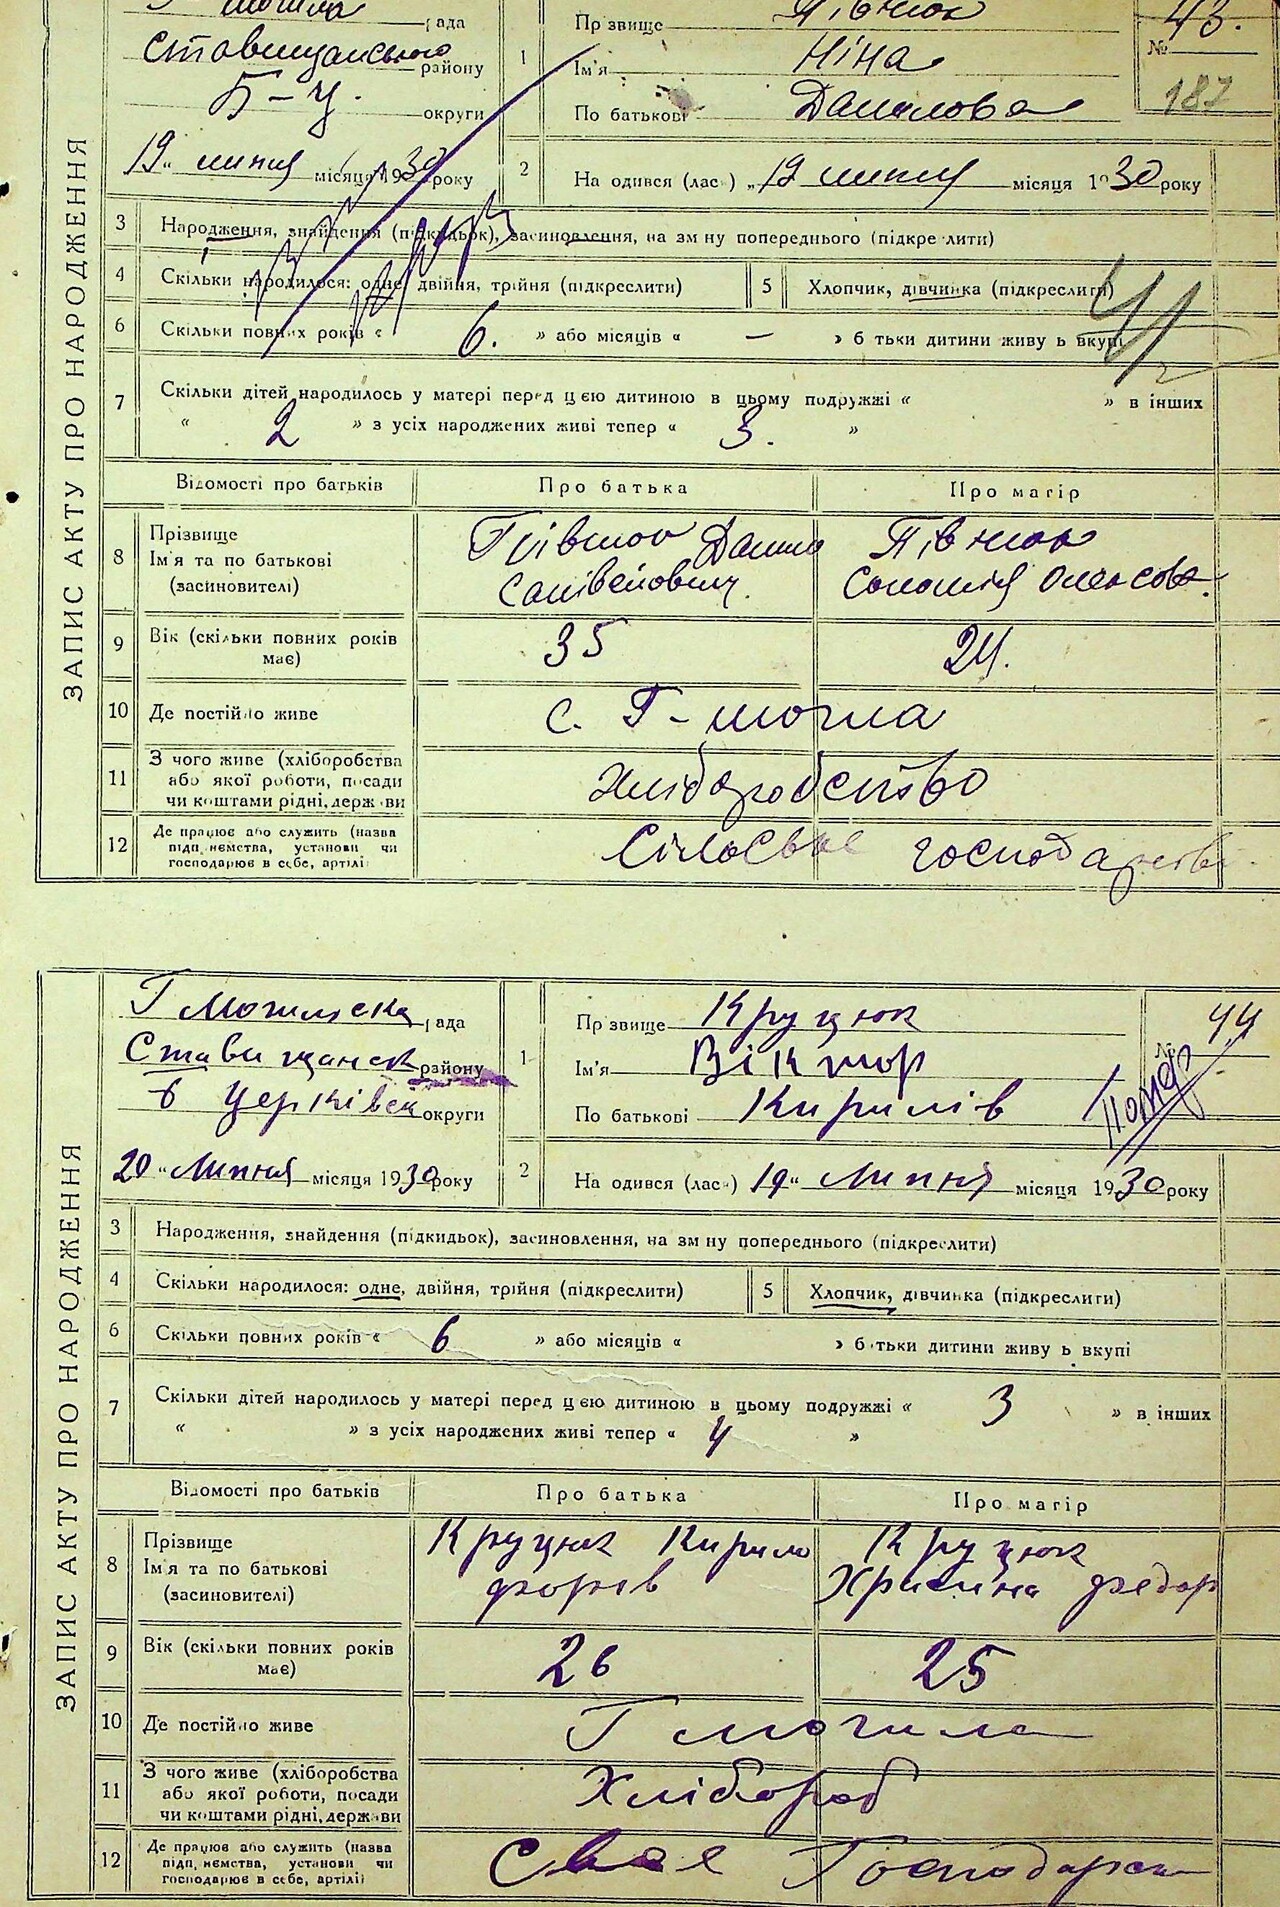 ЗАПИС АКТУ ПРО НАРОДЖЕННЯ
рада
Ставищанського району
Б-Ц. округи
19 липня місяця 1930 року
1
Прізвище Півнюк
Ім'я Ніна
По батькові Данилова
№ 43.
187
2
На одився (лас) „19 липня місяця 1930 року
3
Народження, знайдення (підкидьок), засиновлення, на зміну попереднього (підкреслити)
4
Скільки народилося: одне, двійня, трійня (підкреслити)
5
Хлопчик, дівчинка (підкреслити)
6
Скільки повних років « 6. » або місяців « — » б тьки дитини живуть вкупі
7
Скільки дітей народилось у матері перед цією дитиною в цьому подружжі « » в інших
« 2 » з усіх народжених живі тепер « 3. »
Відомості про батьків
Про батька
Про матір
8
Прізвище
Ім'я та по батькові
(засиновителі)
Данило
Півнюк
9
Вік (скільки повних років має)
35
24.
10
Де постійно живе
с. Г-могила
11
З чого живе (хліборобства
або якої роботи, посади
чи коштами рідні, держави
Хліборобство
12
Де працює або служить (назва
підприємства, установи чи
господарює в себе, артілі
господарстві
ЗАПИС АКТУ ПРО НАРОДЖЕННЯ
Г Могильска рада
Ставищанск району
б Церківск округи
20 „ Липня місяця 1930 року
1
Прізвище Круцюк
Ім'я Віктор
По батькові Кирилів
№ 44
Помер
2
На одився (лас) 19 „ Липня місяця 1930 року
3
Народження, знайдення (підкидьок), засиновлення, на зміну попереднього (підкреслити)
4
Скільки народилося: одне, двійня, трійня (підкреслити)
5
Хлопчик, дівчинка (підкреслити)
6
Скільки повних років « 6 » або місяців « » батьки дитини живуть вкупі
7
Скільки дітей народилось у матері перед цією дитиною в цьому подружжі « 3 » в інших
« » з усіх народжених живі тепер « 4 »
Відомості про батьків
Про батька
Про матір
8
Прізвище
Ім'я та по батькові
(засиновителі)
Круцюк Кирило
Круцюк
Федор
9
Вік (скільки повних років має)
26
25
10
Де постійно живе
Г могила
11
З чого живе (хліборобства
або якої роботи, посади
чи коштами рідні, держави
Хлібороб
12
Де працює або служить (назва
підприємства, установи чи
господарює в себе, артілі
Своє Господарство